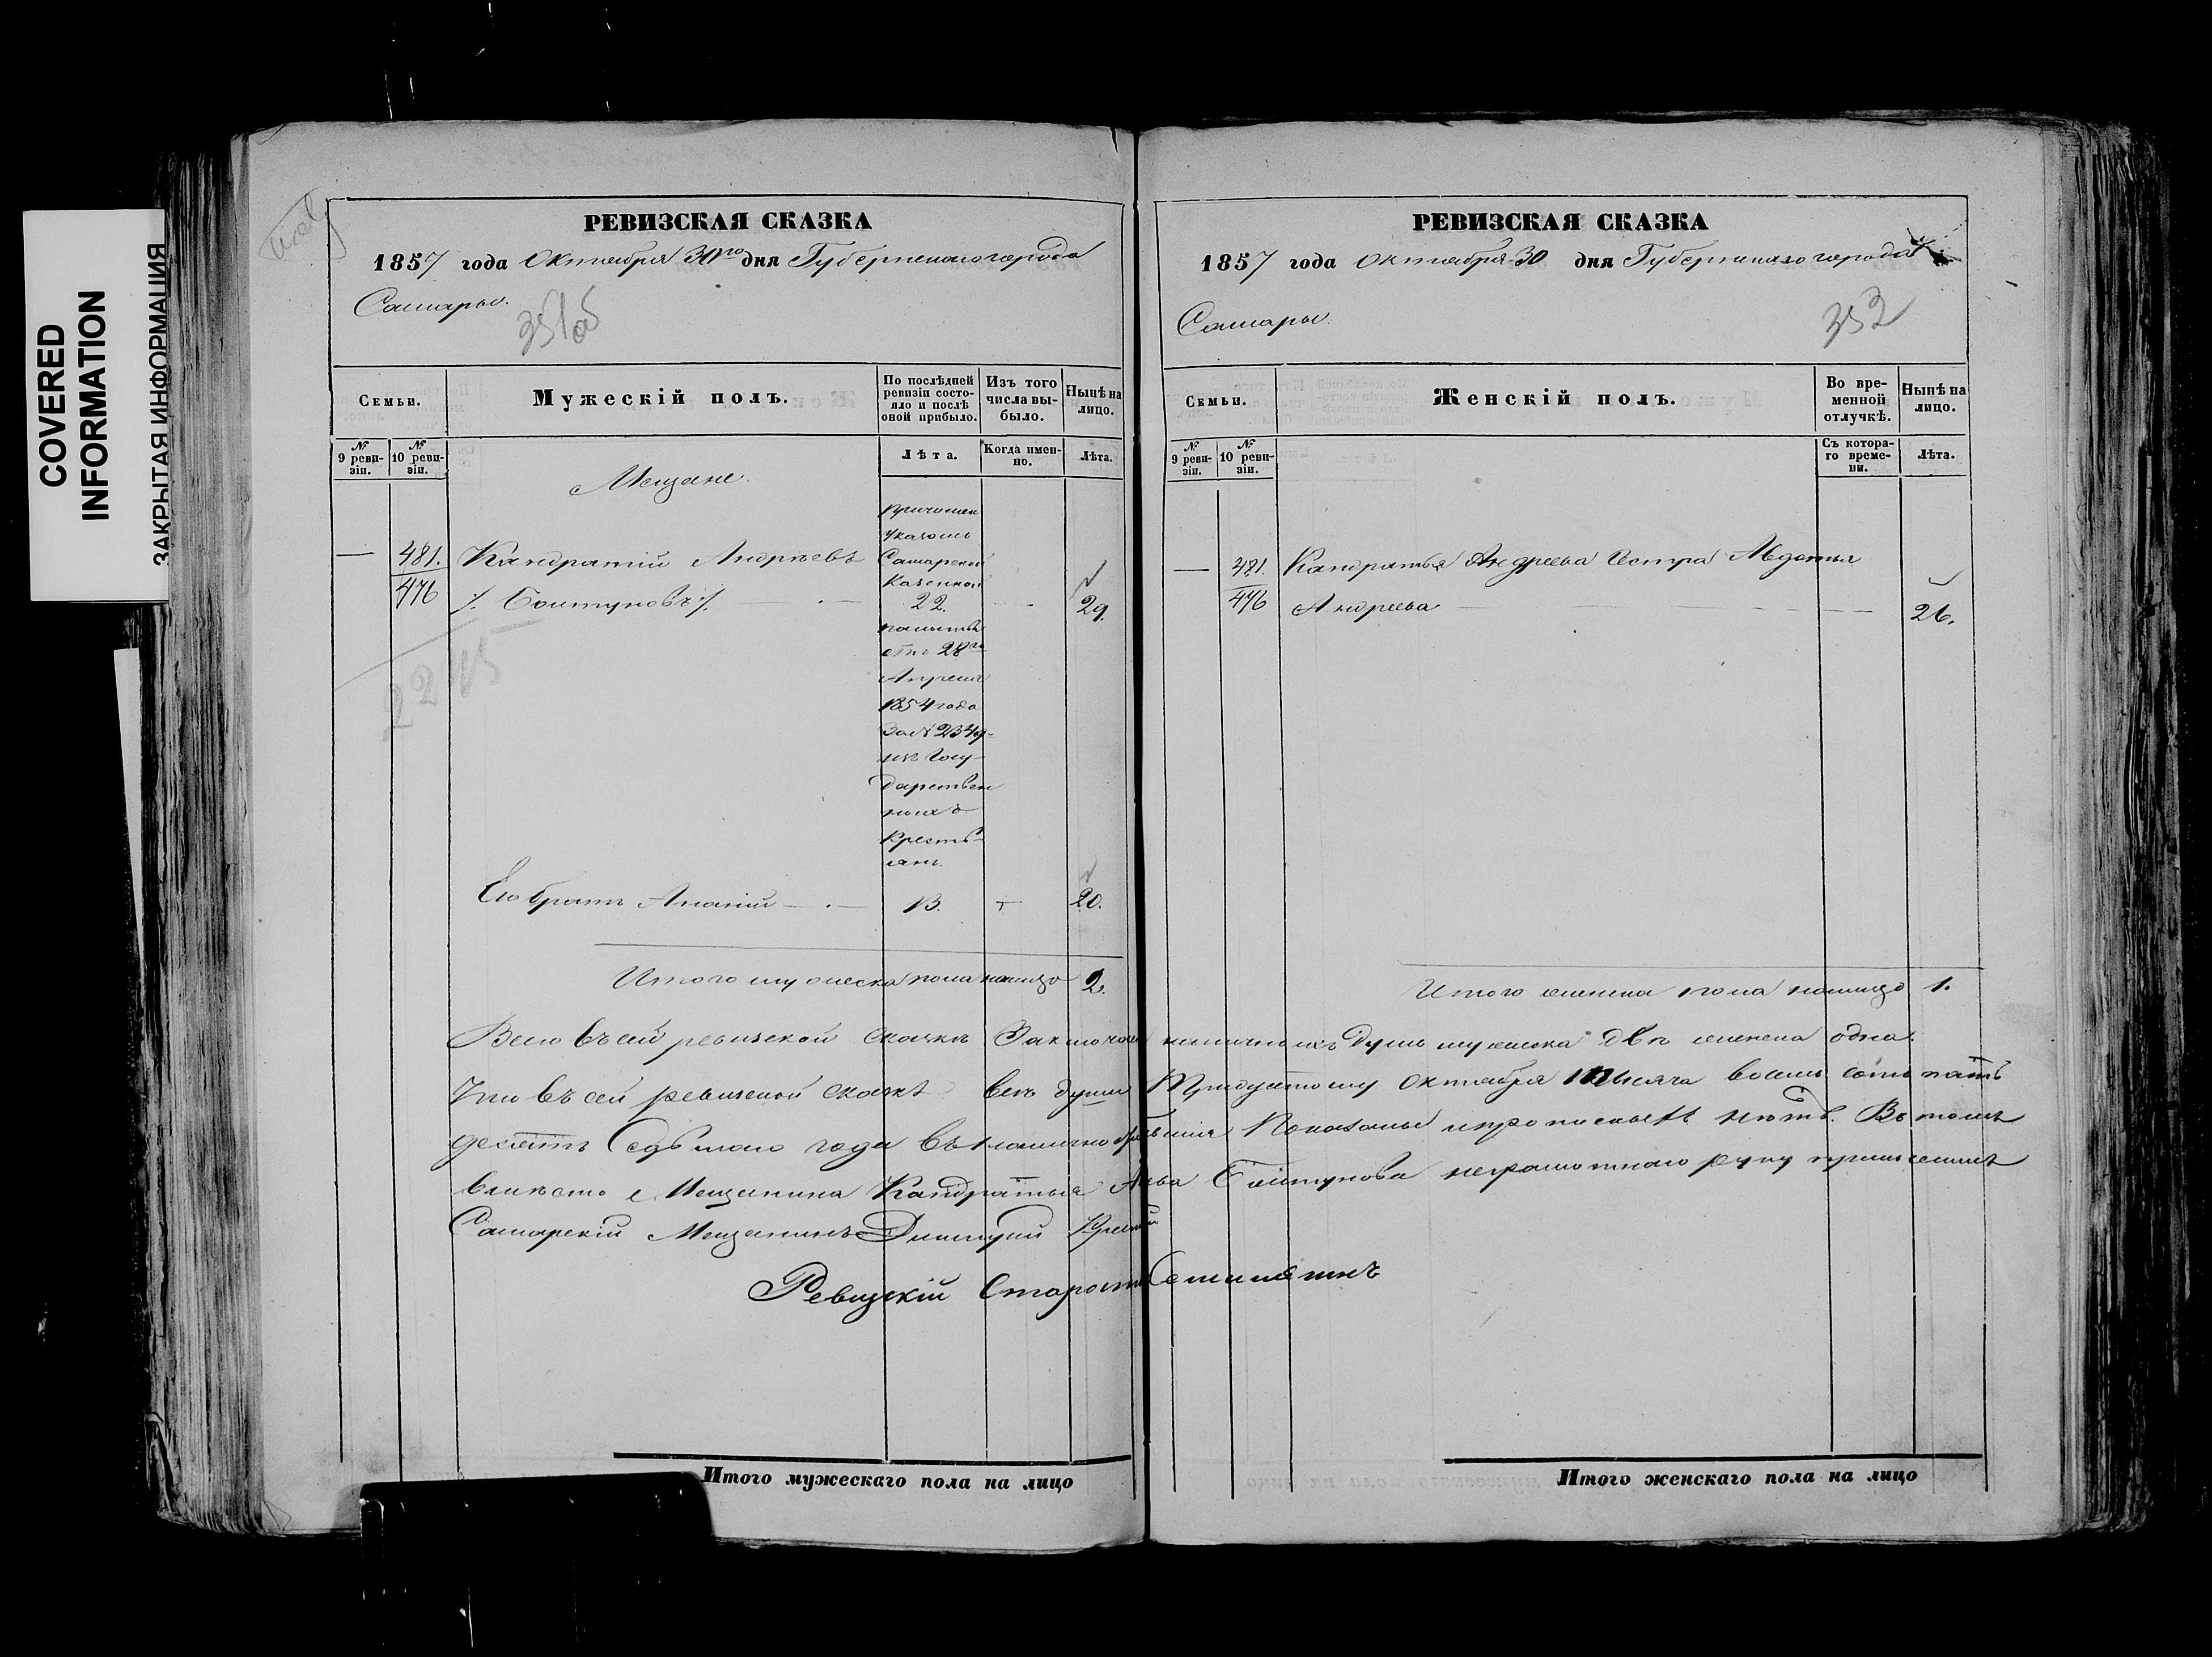 COVERED
INFORMATION
ЗАКРЫТАЯ ИНФОРМАЦИЯ
РЕВИЗСКАЯ СКАЗКА
1857 года Октября 30го дня Губернскаго города
Самары.
351об
Семьи.
Мужескій полъ.
По послѣдней ревизіи состояло и послѣ оной прибыло.
Изъ того числа выбыло.
Нынѣ на лицо.
№ 9 ревизіи.
№ 10 ревизіи.
Лѣта.
Когда именно.
Лѣта.
Мещане.
причислен
указомъ
Самарской
Казенной
— 481. Кандратій Андреевъ
476 ·/. Болтуновъ ·/. 22. 29.
палаты
отъ 28го
Апреля
1854 года
За № 2349
изъ Госу-
дарствен
ныхъ
Кресть-
янъ.
2215
Его братъ Ананій 13. 20.
Итого мужеска пола налицо 2.
РЕВИЗСКАЯ СКАЗКА
1857 года Октября 30 дня Губернскаго города
Самары.
352
Семьи.
Женскій полъ.
Во временной отлучкѣ.
Нынѣ на лицо.
№ 9 ревизіи.
№ 10 ревизіи.
Съ котораго времени.
Лѣта.
— 481. Кандратья Андреева Сестра Авдотья
476 Андреева 26.
Итого женска пола налицо 1.
Всего въ сей ревизской сказкѣ Заключаю наличныхъ душъ мужеска двѣ женска одна.
Что въ сей ревизской сказкѣ всѣ души Тридцатому октября тысяча восемь сотъ пять
десятъ Седьмаго года въ Показаны и прописныхъ нѣтъ. Въ томъ
вмѣсто Мещанина Кандратья Болтунова неграмотнаго руку приложилъ
Самарскій Мещанинъ Димитрій
Ревизкій Староста
Итого мужескаго пола на лицо
Итого женскаго пола на лицо